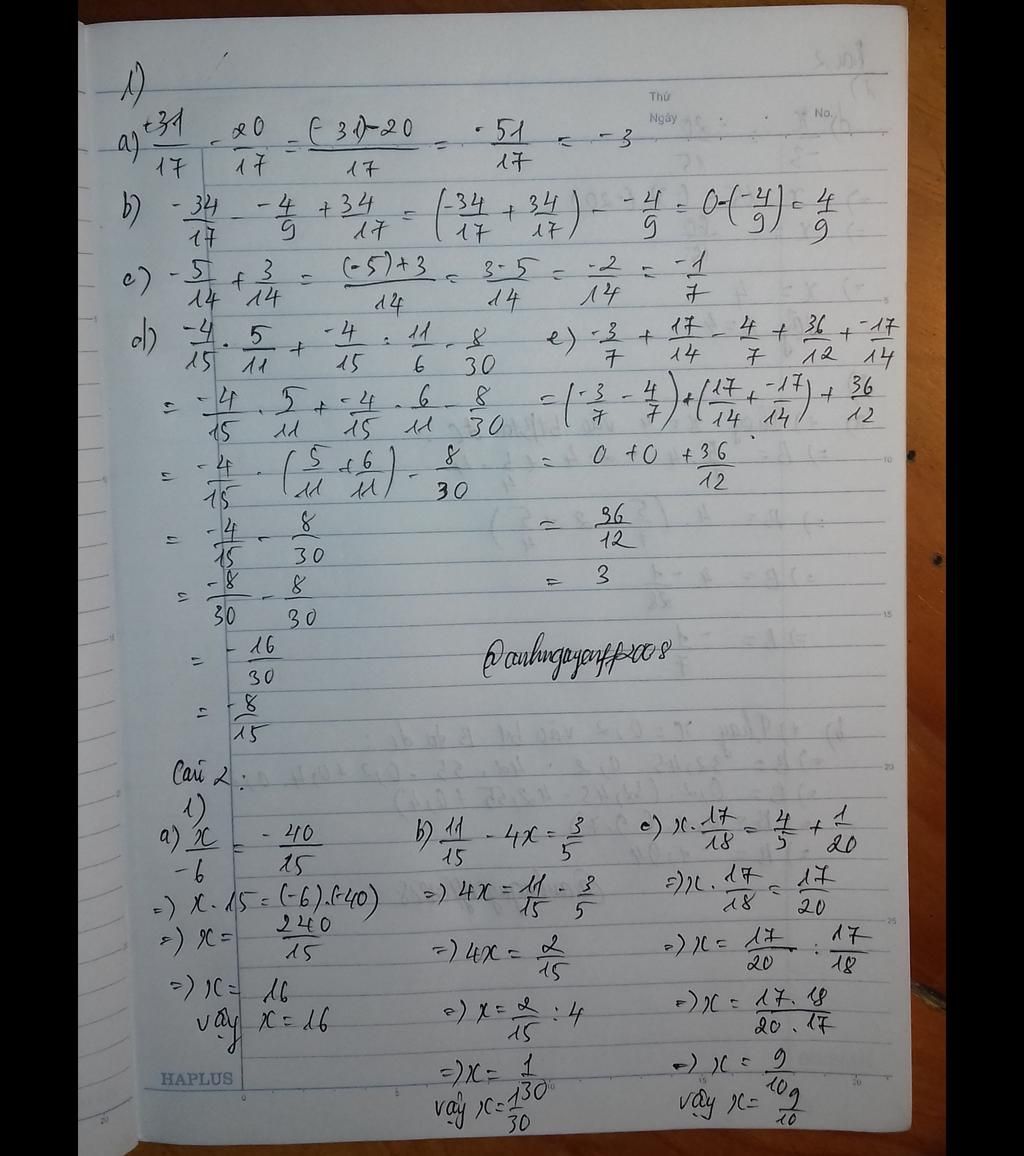 1)
Thứ
Ngày
No.
a) -31/17 - 20/17 = (-31)-20/17 = -51/17 = -3
b) -34/17 - -4/9 + 34/17 = (-34/17 + 34/17) - -4/9 = 0-(-4/9) = 4/9
c) -5/14 + 3/14 = (-5)+3/14 = 3-5/14 = -2/14 = -1/7
d) -4/15 . 5/11 + -4/15 : 11/6 - 8/30
= -4/15 . 5/11 + -4/15 . 6/11 - 8/30
= -4/15 . (5/11 + 6/11) - 8/30
= -4/15 - 8/30
= -8/30 - 8/30
= -16/30
= -8/15
e) -3/7 + 17/14 - 4/7 + 36/12 + -17/14
= (-3/7 - 4/7) + (17/14 + -17/14) + 36/12
= 0 + 0 + 36/12
= 36/12
= 3
Câu 2:
1)
a) x/-6 = -40/15
=) x . 15 = (-6).(-40)
=) x = 240/15
=) x = 16
vậy x = 16
b) 11/15 - 4x = 3/5
=) 4x = 11/15 - 3/5
=) 4x = 2/15
=) x = 2/15 : 4
=) x = 1/30
vậy x = 1/30
c) x . 17/18 = 4/5 + 1/20
=) x . 17/18 = 17/20
=) x = 17/20 : 17/18
=) x = 17 . 18/20 . 17
=) x = 9/10
vậy x = 9/10
HAPLUS